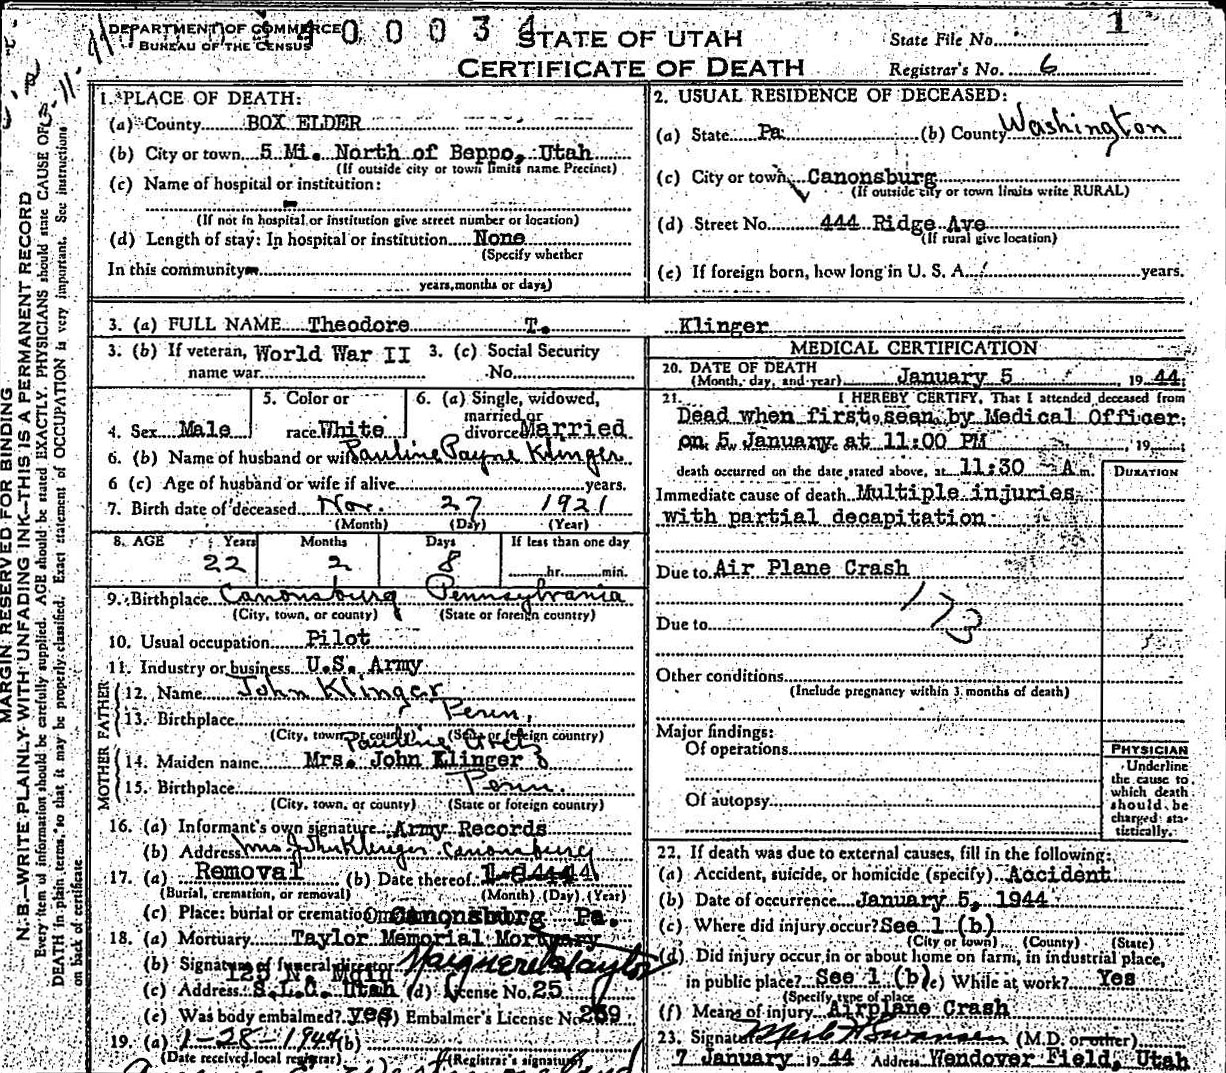 DEPARTMENT OF COMMERCE
BUREAU OF THE CENSUS
0 0 0 3 4
STATE OF UTAH
CERTIFICATE OF DEATH
State File No. 1
Registrar's No. 6
MARGIN RESERVED FOR BINDING
N.B.—WRITE PLAINLY WITH UNFADING INK—THIS IS A PERMANENT RECORD
Every item of information should be carefully supplied. AGE should be stated EXACTLY. PHYSICIANS should state CAUSE OF
DEATH in plain terms, so that it may be properly classified. Exact statement of OCCUPATION is very important. See instructions
on back of certificate.
1. PLACE OF DEATH:
(a) County BOX ELDER
(b) City or town 5 Mi. North of Beppo, Utah
(If outside city or town limits name Precinct)
(c) Name of hospital or institution:
(If not in hospital or institution give street number or location)
(d) Length of stay: In hospital or institution None
(Specify whether
In this community
years, months or days)
2. USUAL RESIDENCE OF DECEASED:
(a) State Pa (b) County Washington
(c) City or town Canonsburg
(If outside city or town limits write RURAL)
(d) Street No. 444 Ridge Ave
(If rural give location)
(e) If foreign born, how long in U. S. A. years.
3. (a) FULL NAME Theodore T. Klinger
3. (b) If veteran, name war World War II 3. (c) Social Security No.
4. Sex Male
5. Color or race White
6. (a) Single, widowed, married or divorced Married
6. (b) Name of husband or wife Pauline Payne Klinger
6 (c) Age of husband or wife if alive years.
7. Birth date of deceased Nov. 27 1921
(Month) (Day) (Year)
8. AGE Years Months Days If less than one day
22 2 8 hr. min.
9. Birthplace Canonsburg Pennsylvania
(City, town, or county) (State or foreign country)
10. Usual occupation Pilot
11. Industry or business U.S. Army
FATHER
12. Name John Klinger
13. Birthplace Penn.
(City, town, or county) (State or foreign country)
MOTHER
Pauline
14. Maiden name Mrs. John Klinger
15. Birthplace Penn.
(City, town, or county) (State or foreign country)
16. (a) Informant's own signature Army Records
(b) Address Mrs John Klinger Canonsburg
17. (a) Removal (b) Date thereof
(Burial, cremation, or removal) (Month) (Day) (Year)
(c) Place: burial or cremation Canonsburg Pa.
18. (a) Mortuary Taylor Memorial Mortuary
(b) Signature of funeral director Marguerite Taylor
(c) Address S.L.C. Utah (d) License No. 25
(e) Was body embalmed? yes Embalmer's License No. 259
19. (a) 1-28-1944 (b)
(Date received local registrar) (Registrar's signature)
MEDICAL CERTIFICATION
20. DATE OF DEATH
(Month, day, and year) January 5, 1944
21. I HEREBY CERTIFY, That I attended deceased from
Dead when first seen by Medical Officer
on 5 January at 11:00 PM, 19
death occurred on the date stated above, at 11:30 A m.
DURATION
Immediate cause of death Multiple injuries
with partial decapitation
Due to Air Plane Crash
173
Due to
Other conditions
(Include pregnancy within 3 months of death)
Major findings:
Of operations
Of autopsy
PHYSICIAN
Underline
the cause to
which death
should be
charged sta-
tistically.
22. If death was due to external causes, fill in the following:
(a) Accident, suicide, or homicide (specify) Accident
(b) Date of occurrence January 5, 1944
(c) Where did injury occur? See 1 (b)
(City or town) (County) (State)
(d) Did injury occur in or about home on farm, in industrial place,
in public place? See 1 (b) (e) While at work? Yes
(Specify type of place
(f) Means of injury Airplane Crash
23. Signature Swansen (M.D. or other)
7 January 19 44 Address Wendover Field, Utah